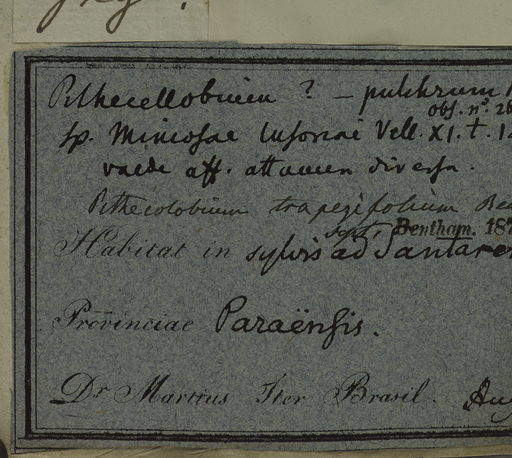 Pithecellobium ? — pulchrum
obs. no. 26
sp. Mimosae lusoriae Vell. XI. t.
valde aff. attamen diversa.
Pithecolobium trapezifolium Be
scrps. Bentham. 187
Habitat in sylvis ad Santarem
Provinciae Paraënsis.
Dr. Martius Iter Brasil. Aug